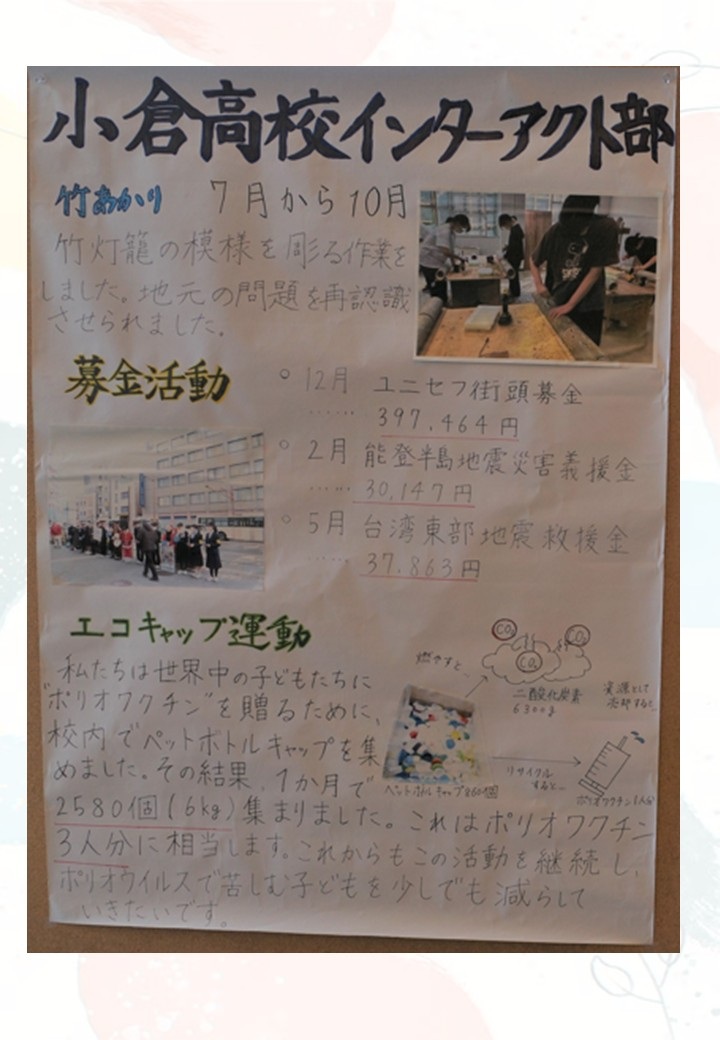 小倉高校インターアクト部
竹あかり 7月から10月
竹灯籠の模様を彫る作業を
しました。地元の問題を再認識
させられました。
募金活動
○ 12月 ユニセフ街頭募金
…… 397,464円
○ 2月 能登半島地震災害義援金
…… 30,147円
○ 5月 台湾東部地震救援金
…… 37,863円
エコキャップ運動
私たちは世界中の子どもたちに
"ポリオワクチン"を贈るために、
校内でペットボトルキャップを集
めました。その結果、1か月で
2580個(6kg)集まりました。これはポリオワクチン
3人分に相当します。これからもこの活動を継続し、
ポリオウイルスで苦しむ子どもを少しでも減らして
いきたいです。
燃やすと…
CO₂
CO₂
CO₂
二酸化炭素
6300g
資源として
売却すると…
リサイクル
すると…
ペットボトルキャップ860個
ポリオワクチン1人分